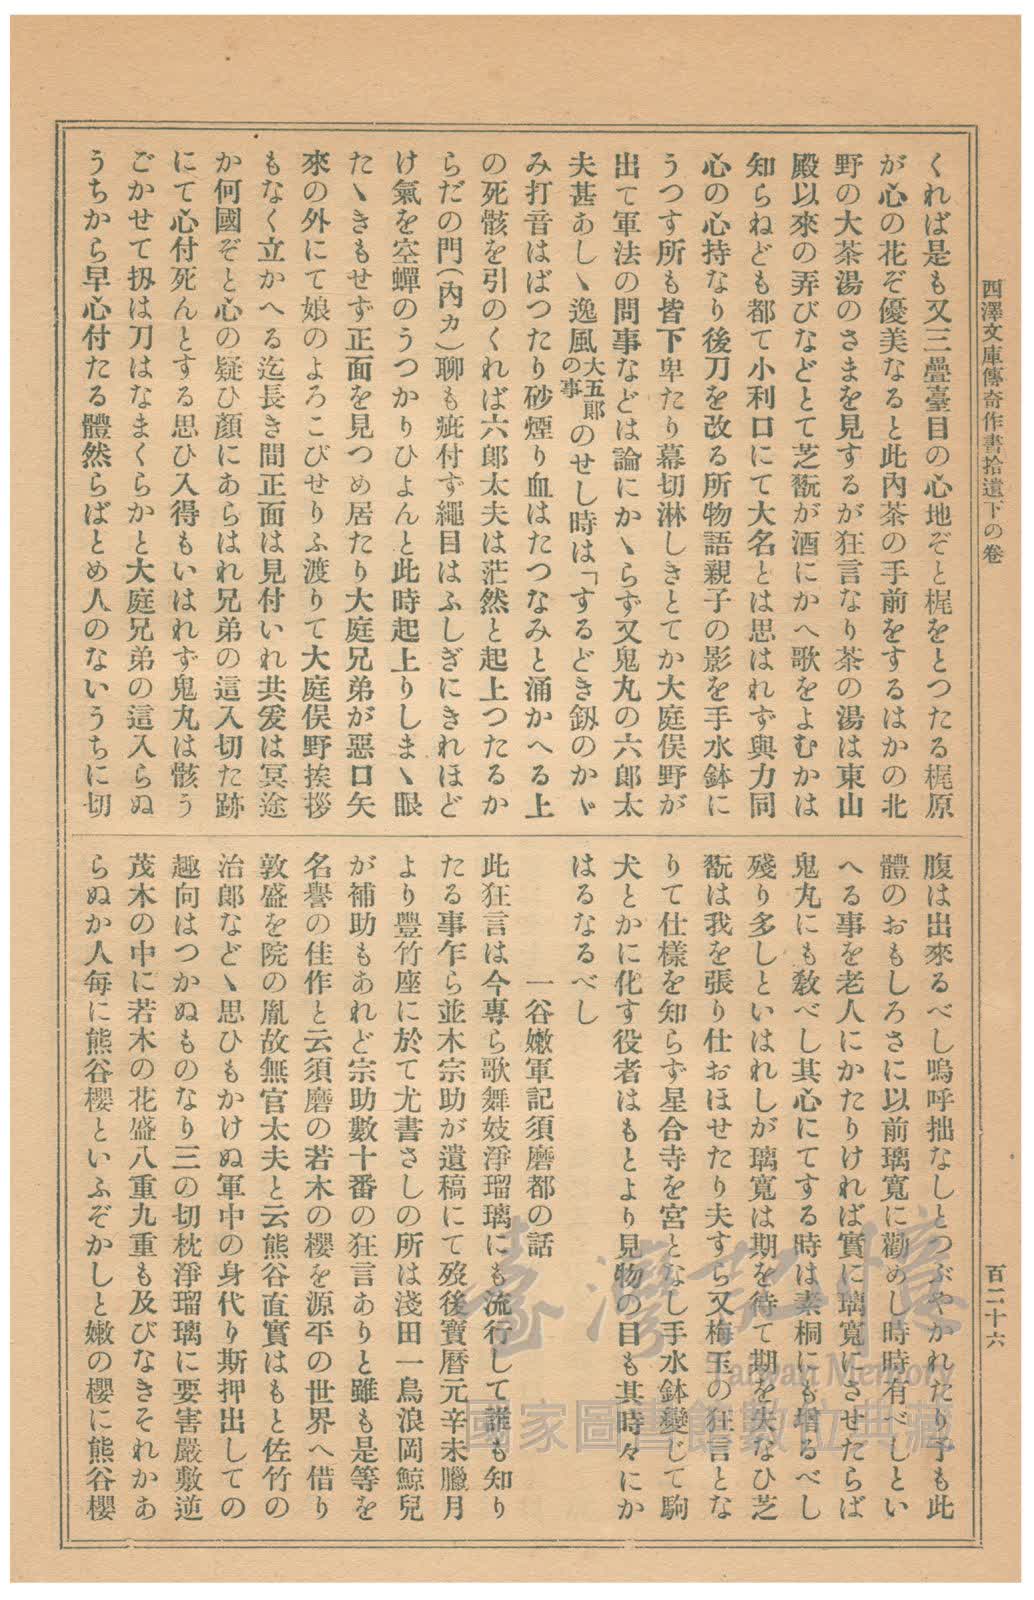 西澤文庫傳奇作書拾遺下の卷
百二十六
くれば是も又三疊臺目の心地ぞと梶をとつたる梶原
が心の花ぞ優美なると此內茶の手前をするはかの北
野の大茶湯のさまを見するが狂言なり茶の湯は東山
殿以來の弄びなどとて芝翫が酒にかへ歌をよむかは
知らねども都て小利口にて大名とは思はれず與力同
心の心持なり後刀を改る所物語親子の影を手水鉢に
うつす所も皆下卑たり幕切淋しきとてか大庭俣野が
出て軍法の問事などは論にかゝらず又鬼丸の六郞太
夫甚あしゝ逸風大五郞の事のせし時は「するどき釼のかゞ
み打音はばつたり砂煙り血はたつなみと涌かへる上
の死骸を引のくれば六郞太夫は茫然と起上つたるか
らだの門(內カ)聊も疵付ず繩目はふしぎにきれほど
け氣を空蟬のうつかりひよんと此時起上りしまゝ眼
たゝきもせず正面を見つめ居たり大庭兄弟が惡口矢
來の外にて娘のよろこびせりふ渡りて大庭俣野挨拶
もなく立かへる迄長き間正面は見付いれ共爰は冥途
か何國ぞと心の疑ひ顏にあらはれ兄弟の這入切た跡
にて心付死んとする思ひ入得もいはれず鬼丸は骸う
ごかせて扨は刀はなまくらかと大庭兄弟の這入らぬ
うちから早心付たる體然らばとめ人のないうちに切
腹は出來るべし嗚呼拙なしとつぶやかれたり予も此
體のおもしろさに以前璃寬に勸めし時時有べしとい
へる事を老人にかたりければ實に璃寬にさせたらば
鬼丸にも敎べし其心にてする時は素桐にも增るべし
殘り多しといはれしが璃寬は期を待て期を失なひ芝
翫は我を張り仕おほせたり夫すら又梅玉の狂言とな
りて仕樣を知らず星合寺を宮となし手水鉢變じて駒
犬とかに化す役者はもとより見物の目も其時々にか
はるなるべし
一谷嫩軍記須磨都の話
此狂言は今專ら歌舞妓淨瑠璃にも流行して誰も知り
たる事乍ら並木宗助が遺稿にて歿後寶曆元辛未臘月
より豐竹座に於て尤書さしの所は淺田一鳥浪岡鯨兒
が補助もあれど宗助數十番の狂言ありと雖も是等を
名譽の佳作と云須磨の若木の櫻を源平の世界へ借り
敦盛を院の胤故無官太夫と云熊谷直實はもと佐竹の
治郞などゝ思ひもかけぬ軍中の身代り斯押出しての
趣向はつかぬものなり三の切枕淨瑠璃に要害嚴敷逆
茂木の中に若木の花盛八重九重も及びなきそれかあ
らぬか人每に熊谷櫻といふぞかしと嫩の櫻に熊谷櫻
臺灣記憶
Taiwan Memory
國家圖書館數位典藏